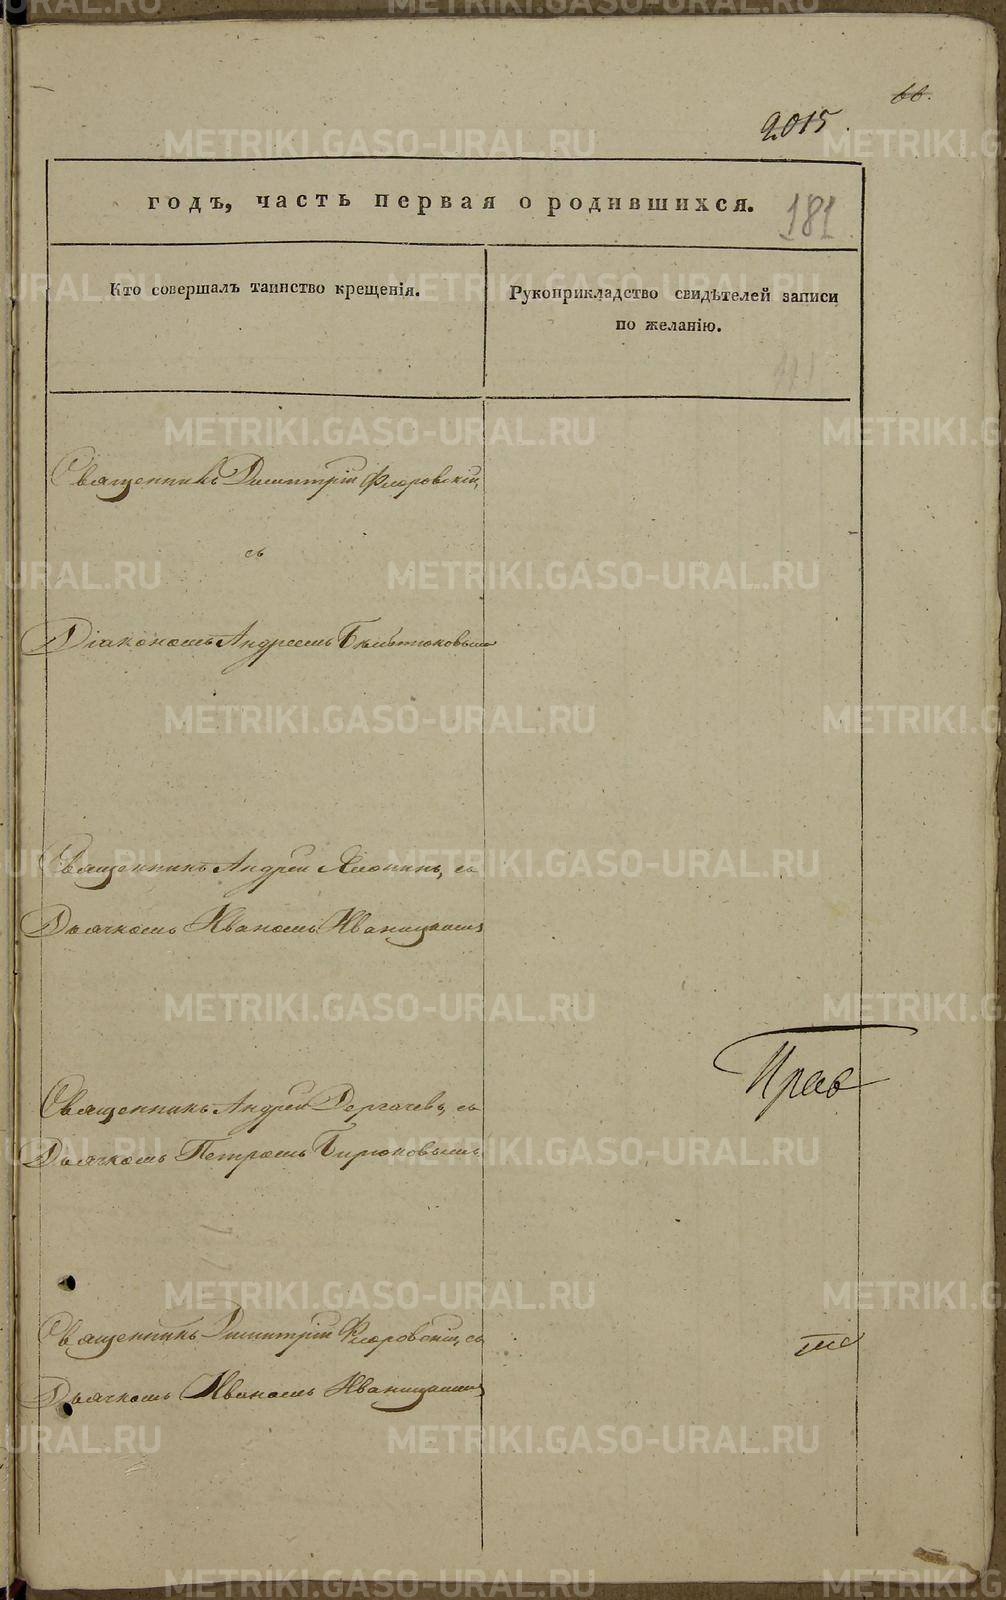 66.
2015.
годъ, часть первая о родившихся.
181
Кто совершалъ таинство крещенія.
Рукоприкладство свидѣтелей записи
по желанію.
Священникъ Димитрій Флоровскій,
съ
Діакономъ Андреемъ
Священникъ Андрей съ
Дьячкомъ Иваномъ Иваницкимъ
Прав
Священникъ Андрей Дергачевъ, съ
Дьячкомъ Петромъ Бирюковымъ
Священникъ Димитрій Флоровскій, съ
Дьячкомъ Иваномъ Иваницкимъ
METRIKI.GASO-URAL.RU